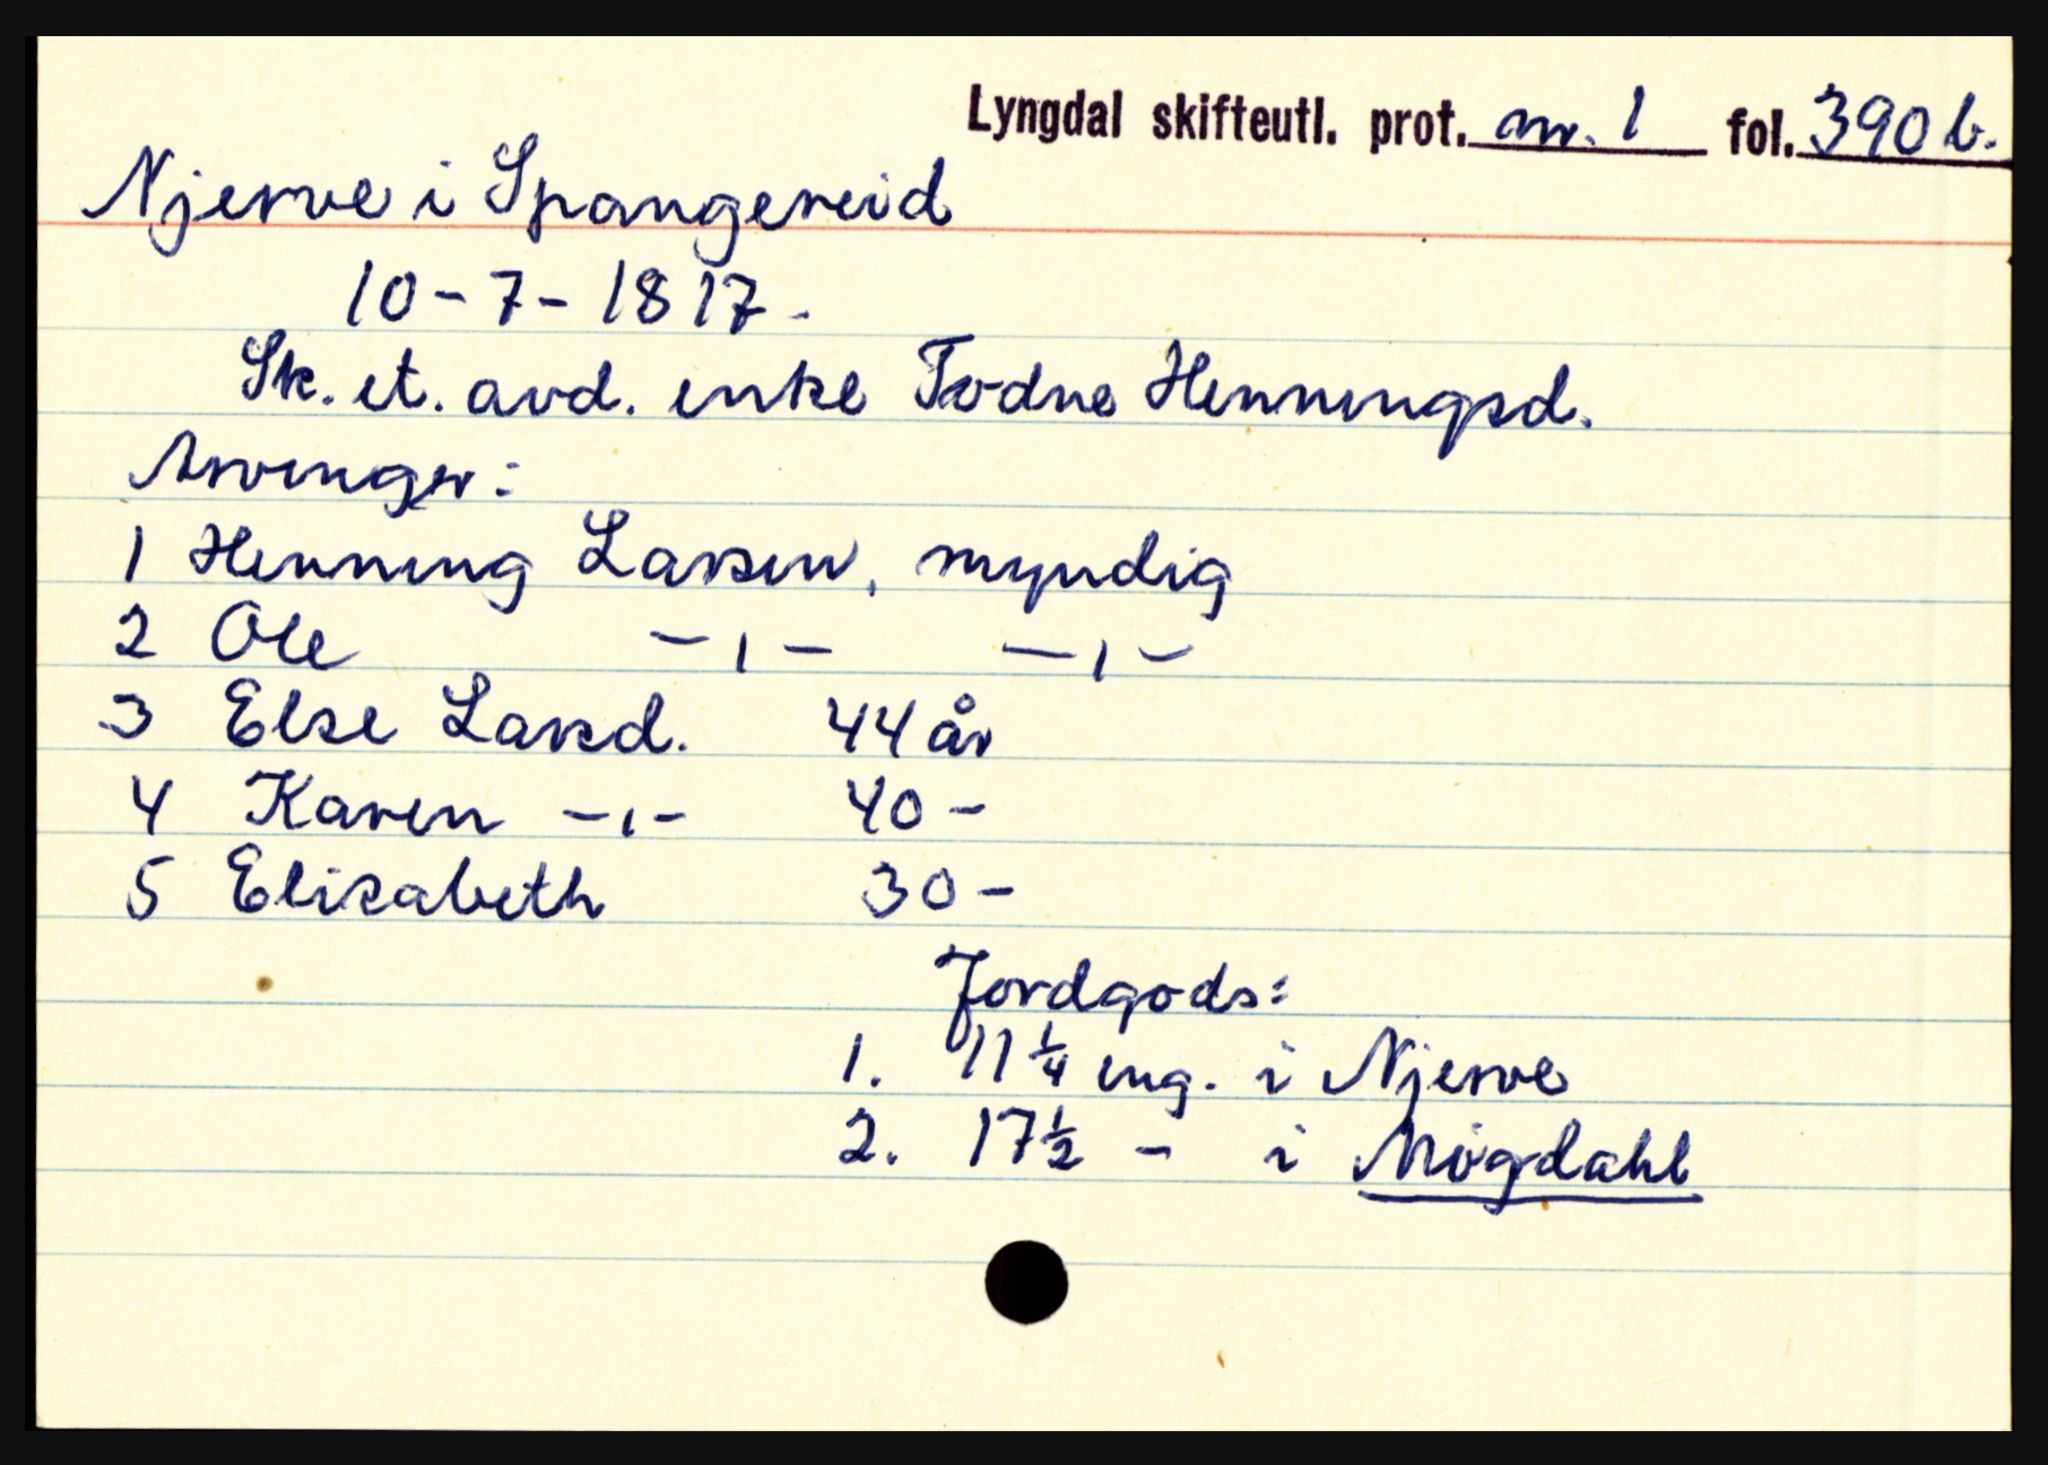 Lyngdal skifteutl. prot. nr. 1 fol. 390 b.
Njerve i Spangereid
10-7-1817.
Sk. et. avd. enke Todne Henningsd.
Arvinger:
1 Henning Larsen, myndig
2 Ole -"- -"-
3 Else Larsd. 44 år
4 Karen -"- 40 -
5 Elisabeth 30 -
Jordgods:
1. 11 1/4 eng. i Njerve
2. 17 1/2 - i Møgdahl